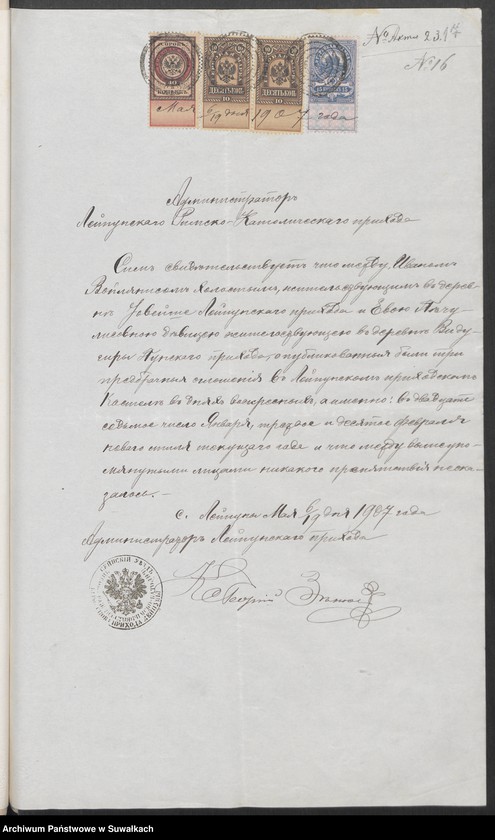 № Акта 23.
№ 16
10
ДЕСЯТЬ КОП.
10
ДЕСЯТЬ КОП.
10
Мая 6/19 дня 1907 года
Администраторъ
Лейпунскаго Римско-Католическаго прихода
Симъ свидѣтельствуетъ что между Иваномъ
холостымъ, жительствующимъ въ дерев-
нѣ Лейпунскаго прихода и Евою
дѣвицею жительствующею въ деревнѣ Виду-
гиры Пунскаго прихода, опубликованныя были три
предбрачныя оглашенія въ Лейпунскомъ приходскомъ
Костелѣ въ дняхъ воскресныхъ, а именно: въ двадцать
седьмое число Января, третее и десятое Февраля
новаго стиля текущаго года и что между вышеупо-
мянутыми лицами никакого препятствія неска-
залось.–
с. Лейпуны Мая 6/19 дня 1907 года
Администраторъ Лейпунскаго прихода
К. Георгій
СЕЙНСКІЙ УѢЗДЪ
ПРИХОДА
Archiwum Państwowe w Suwałkach